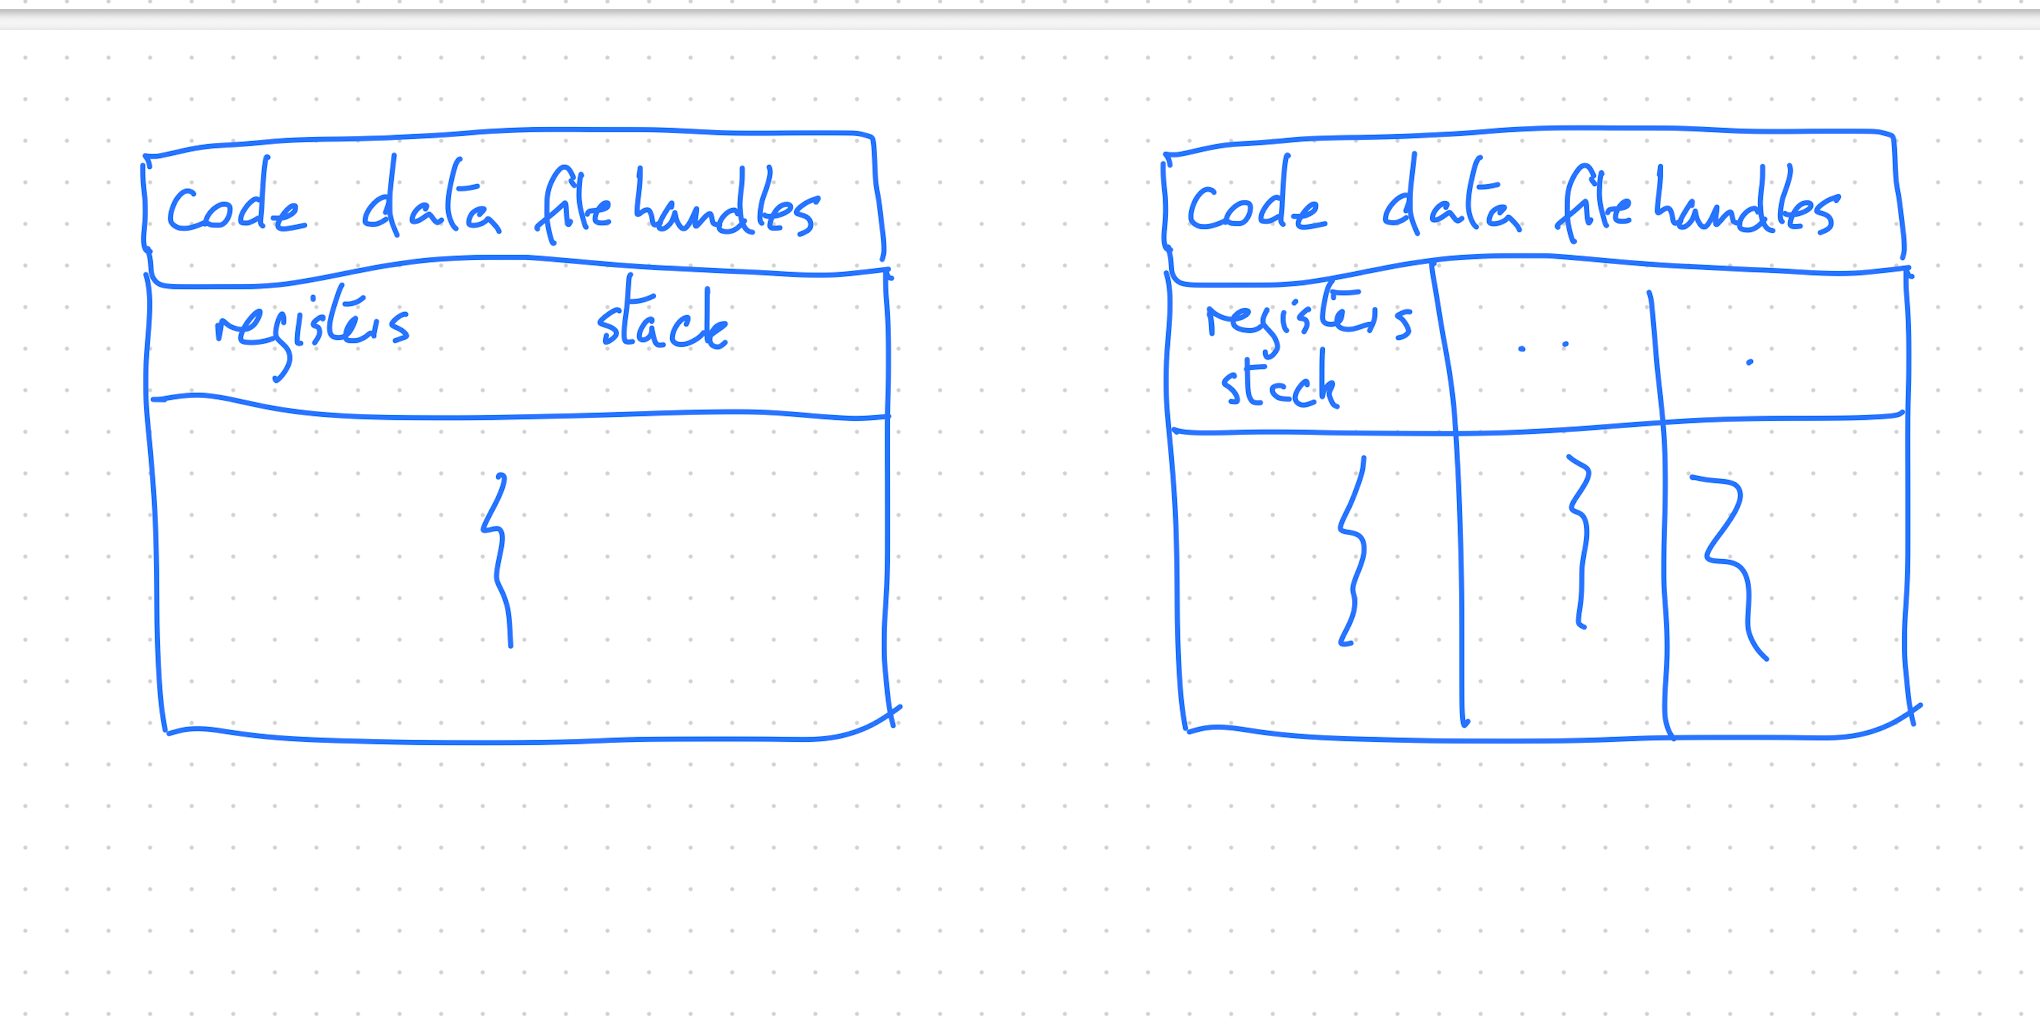 Code data file handles
registers stack
Code data file handles
registers
stack
. .
.